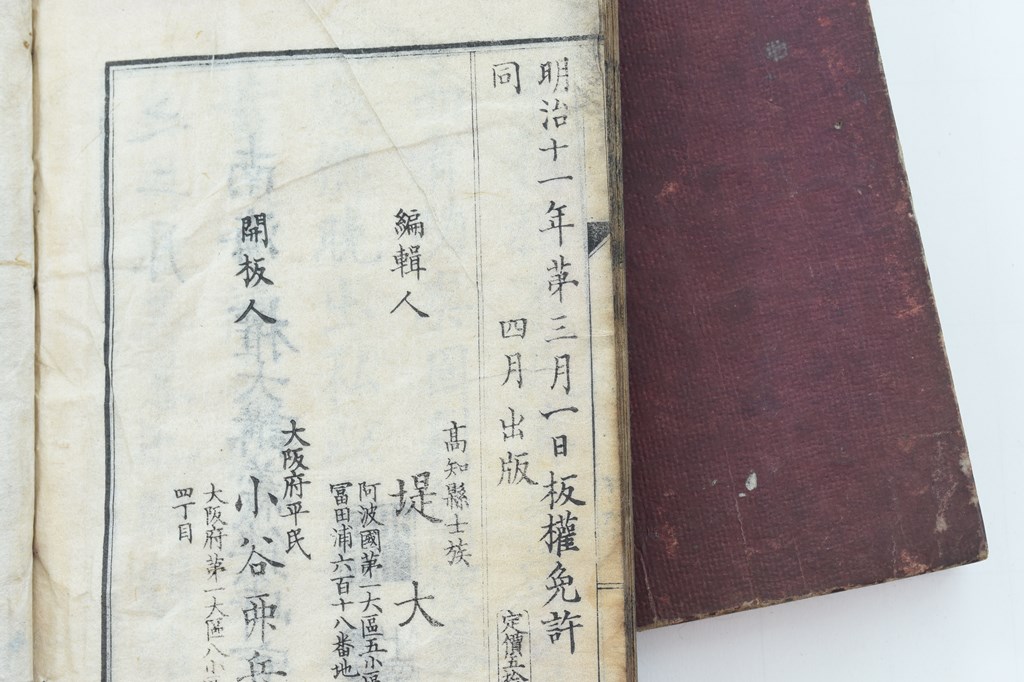 明治十一年第三月一日板權免許
同 四月出版
定價五拾
編輯人
高知縣士族
堤 大
阿波國第一大區五小區
冨田浦六百十八番地
開板人
大阪府平民
小谷
大阪府第一大區八小
四丁目